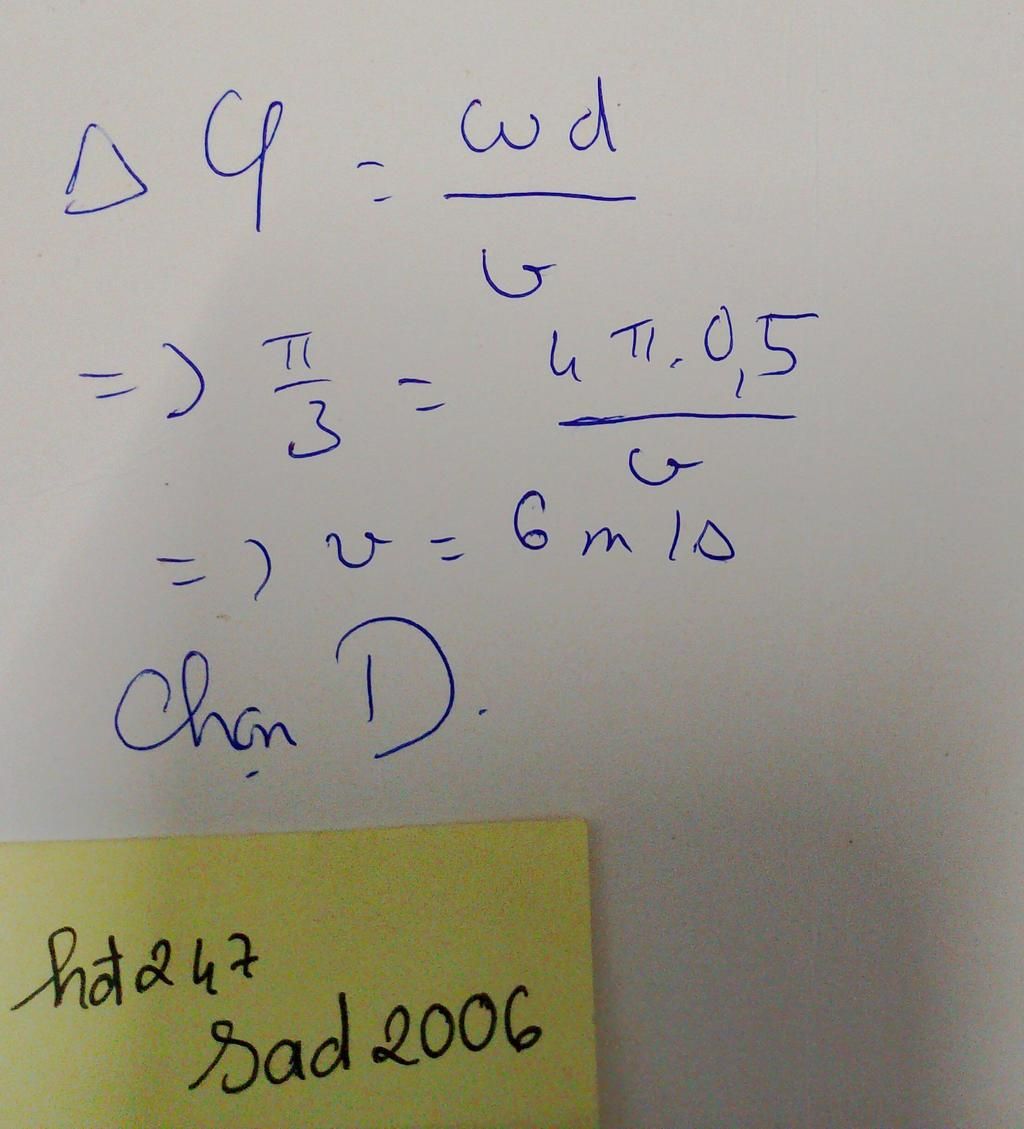 Δφ = ωd / v
=> π/3 = 4π.0,5 / v
=> v = 6 m/s
Chọn D.
hđ247
sad2006